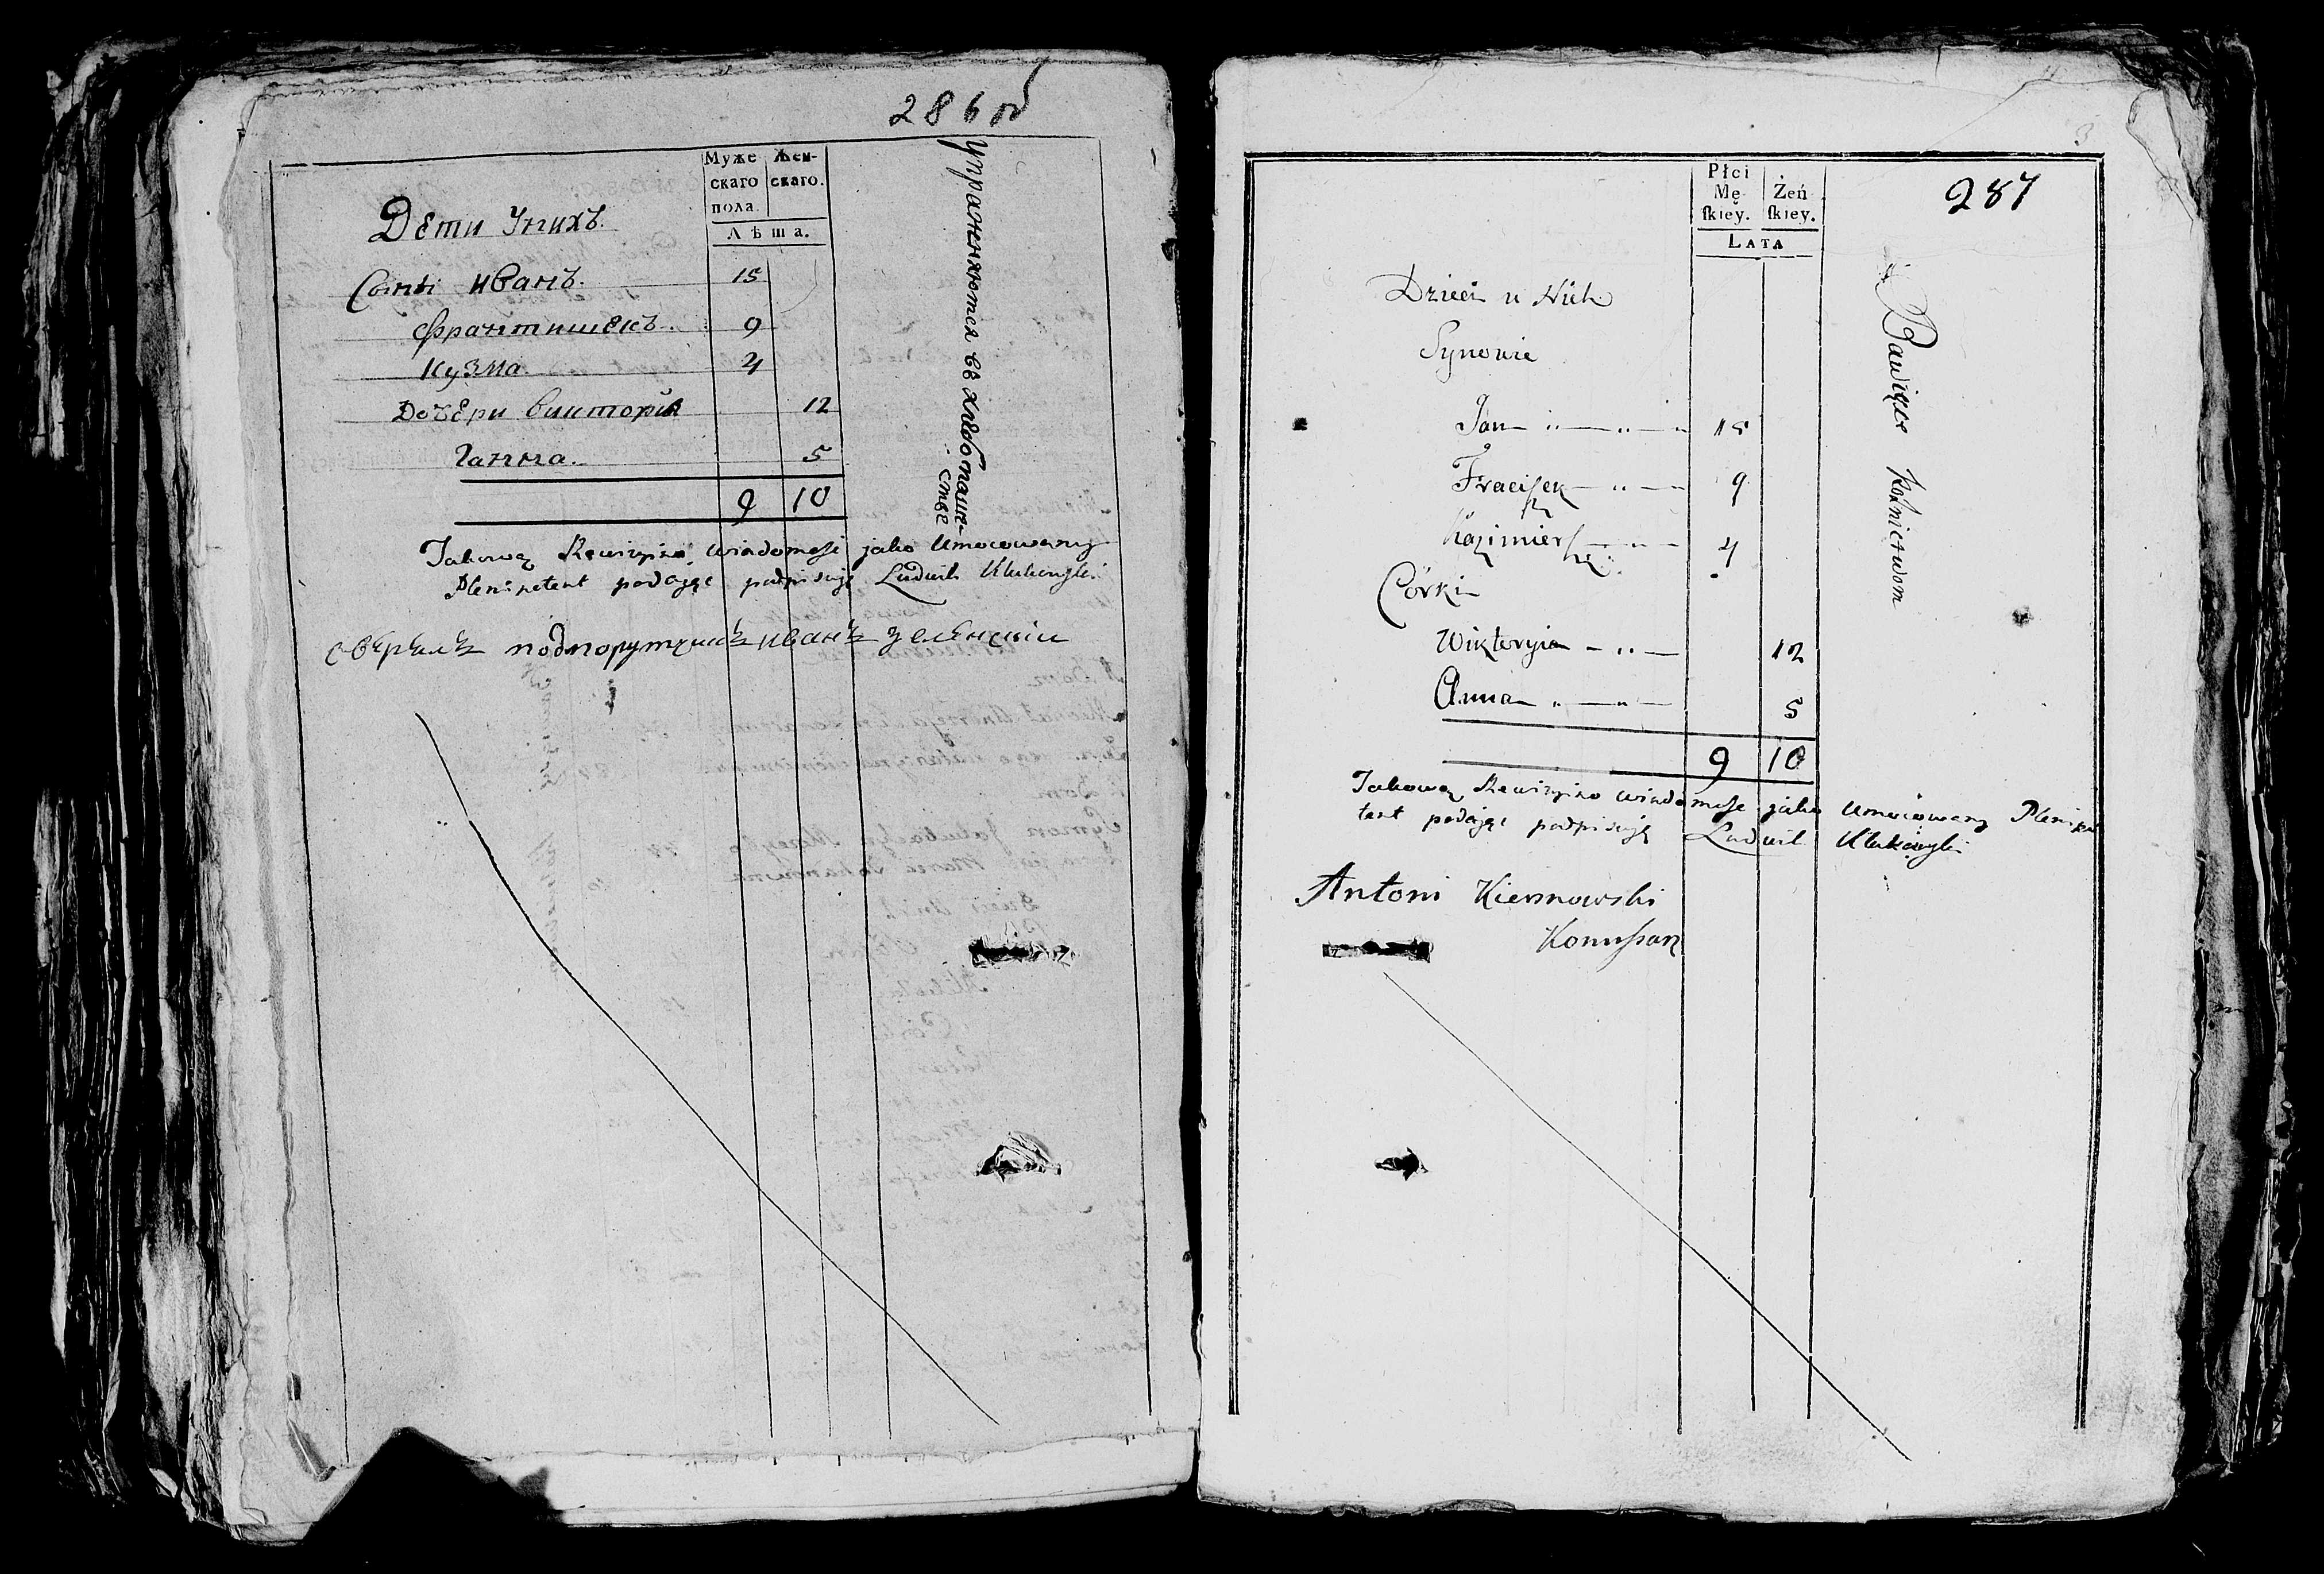 286 об
Муже Жен-
скаго скаго.
пола.
Лѣта.
Дети Унихъ.
Сыны Иванъ. 15
Франтишекъ. 9
Кузма. 4
Дочери Викторія 12
Ганна. 5
9 10
упражняются въ хлебопаше-
стве
Takową Rewizyiną wiadomość jako Umocowany
Plenipotent podając podpisuję Ludwik
сверялъ подпорутчикъ Иванъ Зеленскiй
287
Płci
Mę- Żeń
ſkiey. ſkiey.
LATA
Dzieci u Nich
Synowie
Jan 15
Fraciſzek 9
Kazimierſz 4
Córki
Wiktoryia 12
Anna 5
9 10
Bawiące Rolnictwom
Takową Rewizyiną wiadomość jako Umocowany Plenipo
tent podając podpisuję Ludwik
Antoni Kiersnowski